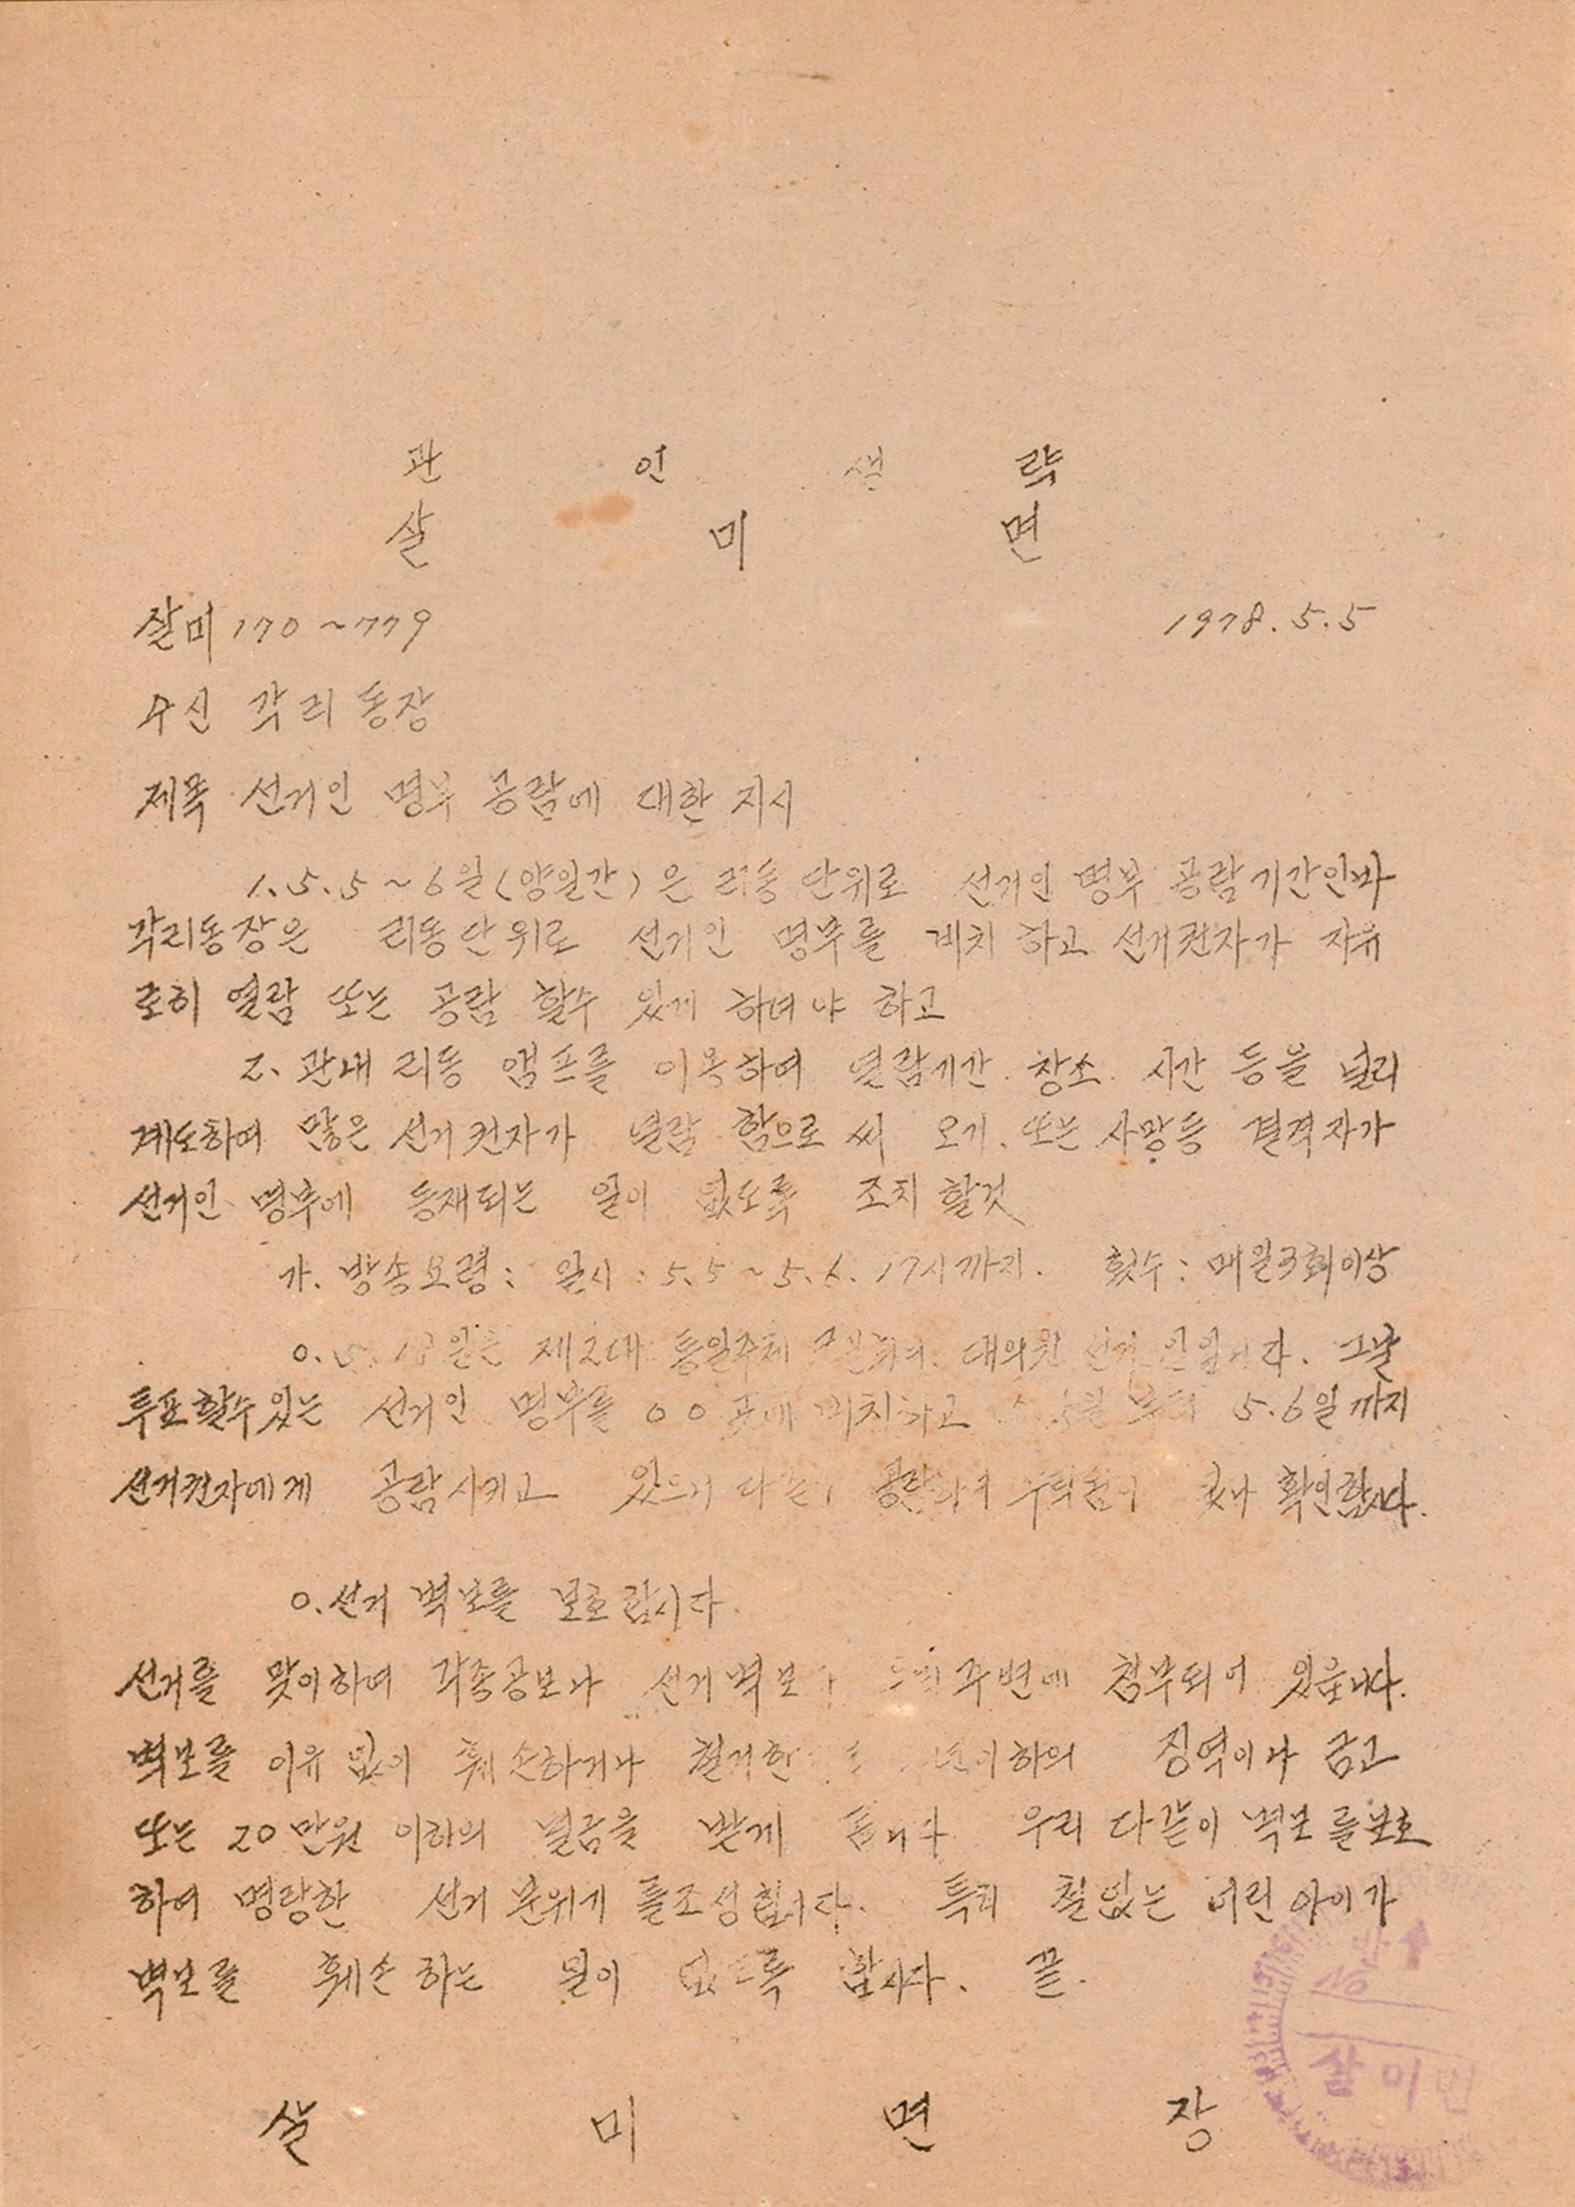 관 인 생 략
살 미 면
살미 170~779 1978.5.5
수신 각리동장
제목 선거인 명부 공람에 대한 지시
1. 5.5~6일(양일간)은 리동단위로 선거인 명부 공람기간인바
각리동장은 리동단위로 선거인 명부를 비치 하고 선거권자가 자유
로히 열람 또는 공람 할수 있게 하여야 하고
2. 관내 리동 앰프를 이용하여 열람기간 장소 시간 등을 널리
계도하여 많은 선거권자가 열람 함으로 써 오기. 또는 사망등 결격자가
선거인 명부에 등재되는 일이 없도록 조치 할것
가. 방송요령: 일시 : 5.5~5.6. 17시까지. 횟수: 매일3회이상
0. 5. 18일은 제2대 통일주체 대의원 선거 일입니다. 그날
투표할수있는 선거인 명부를 00곳에 비치하고 부터 5.6일까지
선거권자에게 공람시키고 있으니 확인합시다.
0. 선거 벽보를 보호합시다.
선거를 맞이하여 각종공보나 선거벽보 주변에 첨부되어 있읍니다.
벽보를 이유 없이 훼손하거나 철거한 이하의 징역이나 금고
또는 20만원 이하의 벌금을 받게 됩니다 우리 다같이 벽보를보호
하여 명랑한 선거 분위기를조성합시다. 특히 철없는 어린 아이가
벽보를 훼손 하는 일이 없도록 합시다. 끝.
살 미 면 장
No
살미면